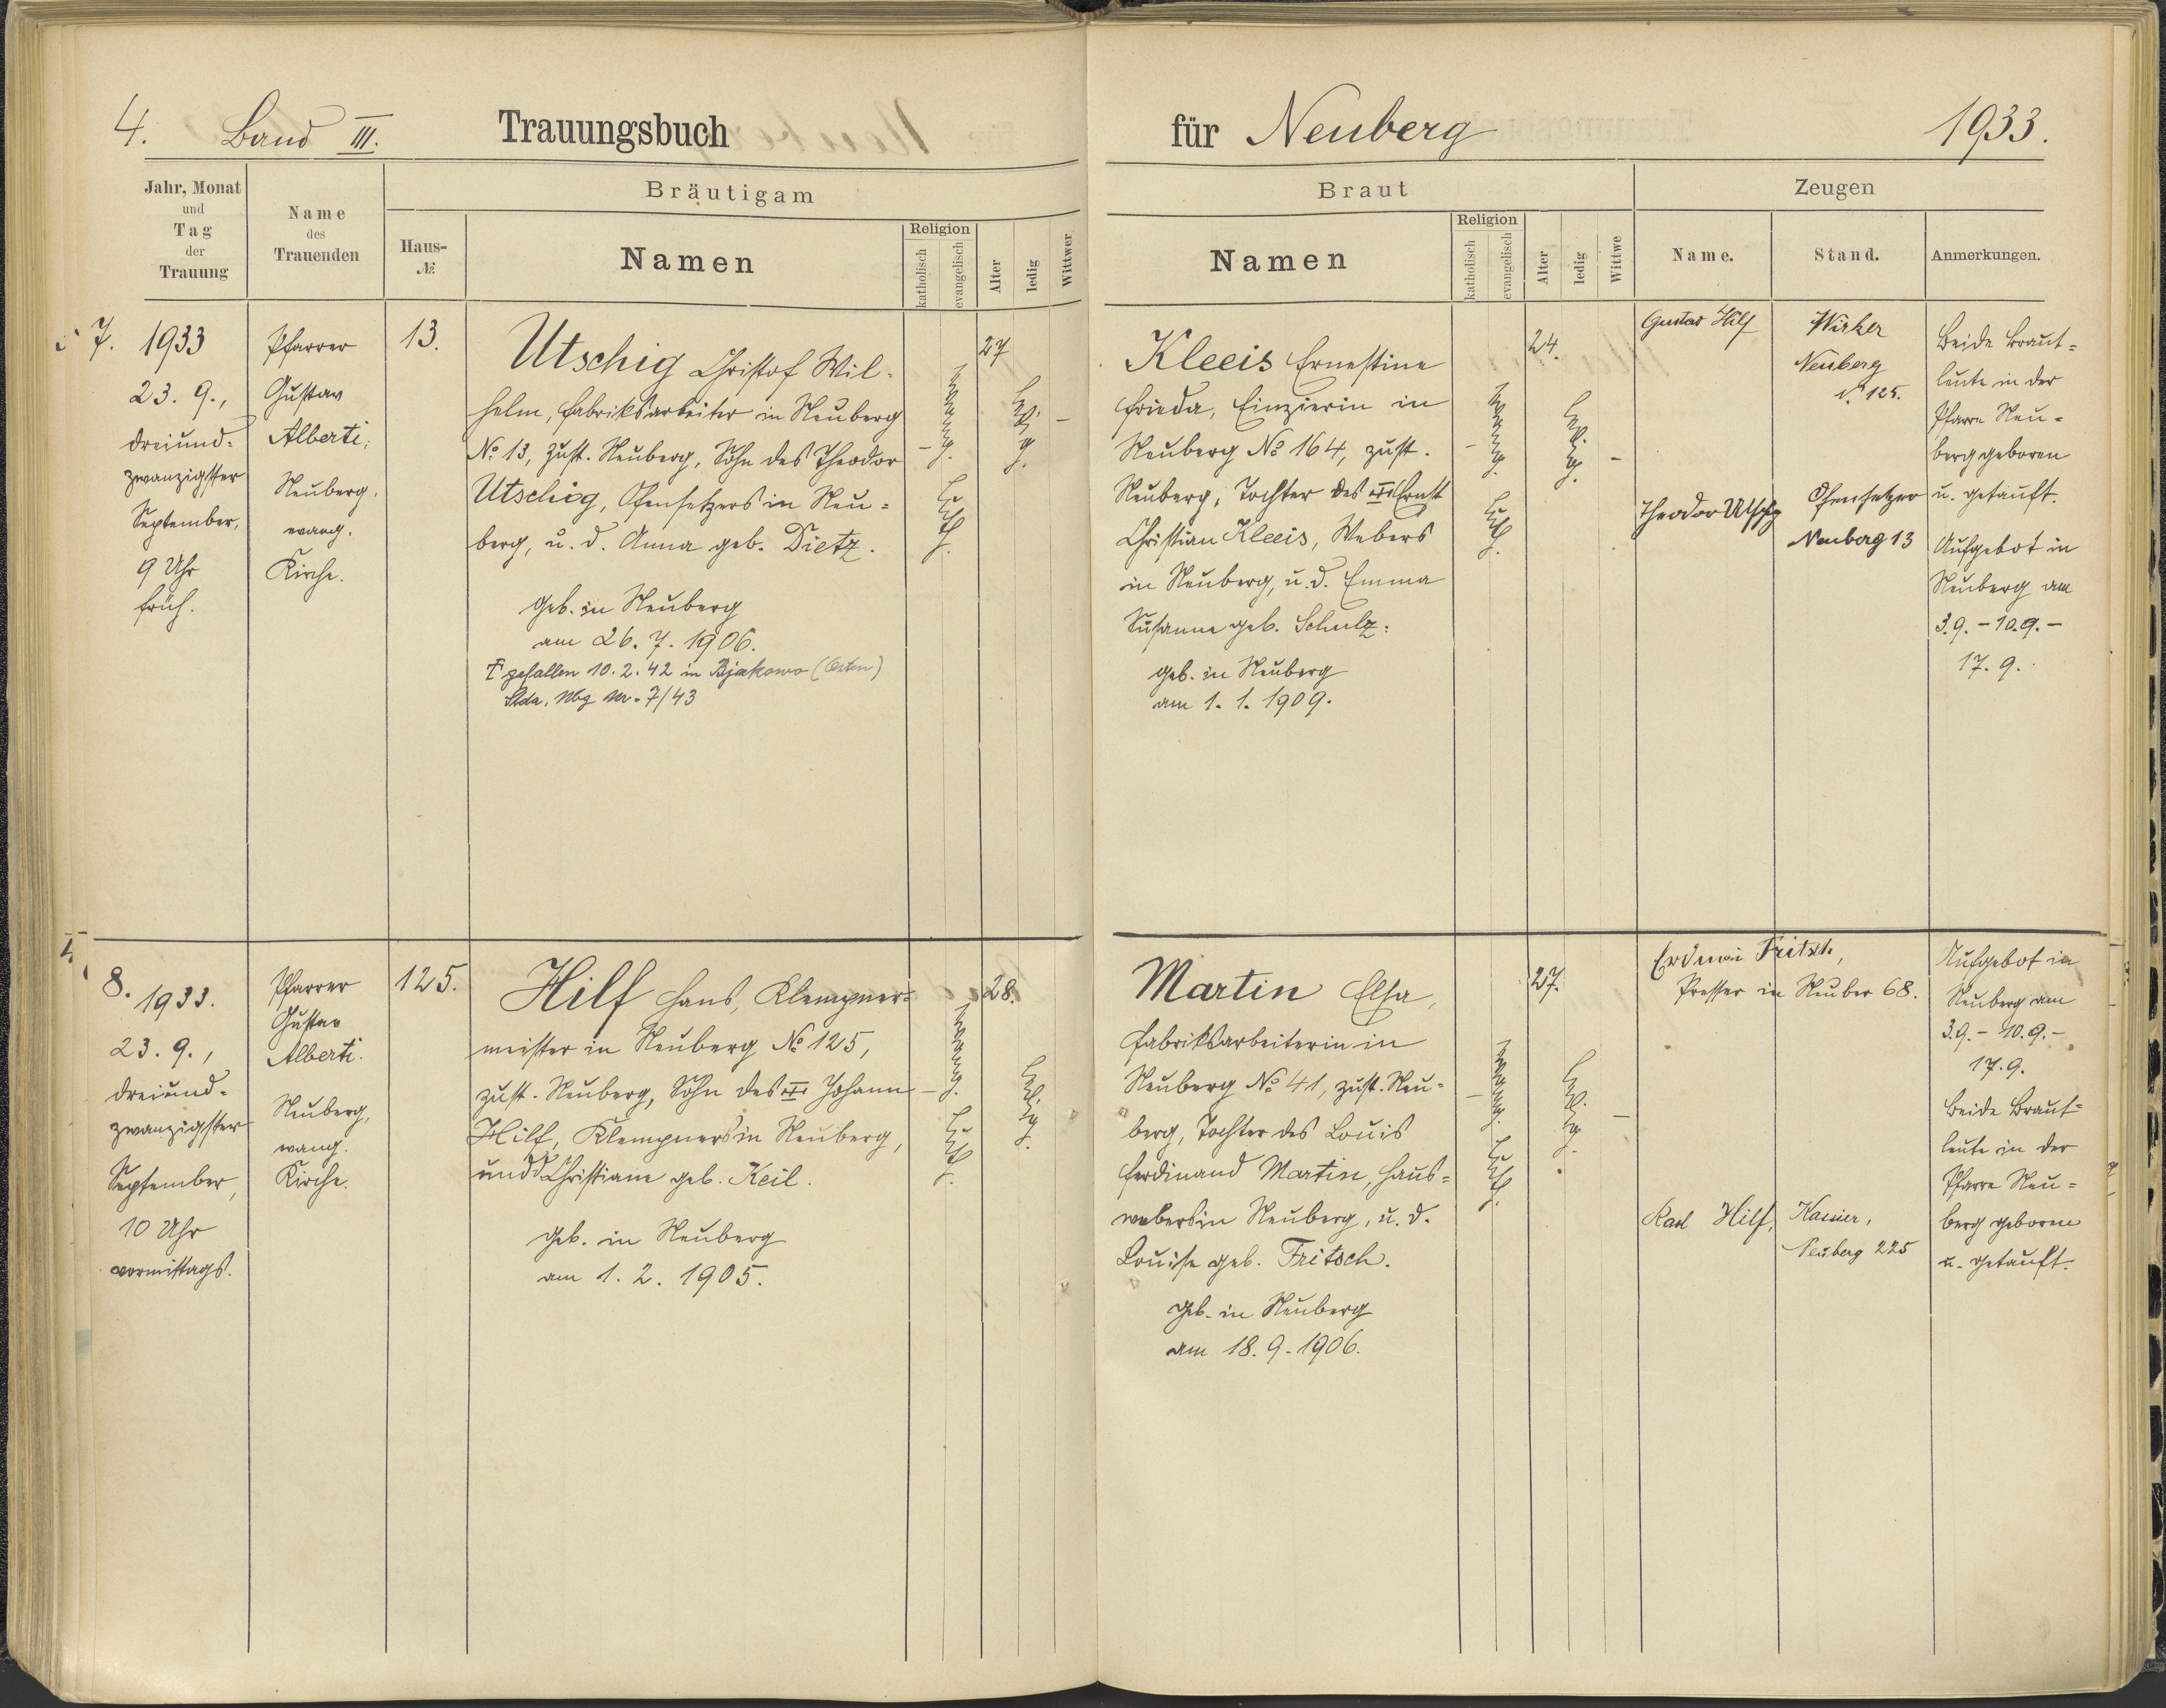 4. Band III. Trauungsbuch
für Neuberg 1933.
Jahr, Monat
und
Tag
der
Trauung
Name
des
Trauenden
Bräutigam
Haus-
№
Namen
Religion
katholisch
evangelisch
Alter
ledig
Wittwer
Braut
Namen
Religion
katholisch
evangelisch
Alter
ledig
Wittwe
Zeugen
Name.
Stand.
Anmerkungen.
7. 1933
23. 9.,
dreiund-
zwanzigster
September,
9 Uhr
früh.
Pfarrer
Gustav
Alberti,
Neuberg,
evang.
Kirche.
13.
Utschig Christof Wil-
helm, Fabriksarbeiter in Neuberg
№ 13, zust. Neuberg, Sohn des Theodor
Utschig, Ofensetzers in Neu-
berg, u. d. Anna geb. Dietz.
Geb. in Neuberg
am 26. 7. 1906.
gefallen 10. 2. 42 in Bjakowo (Osten)
Stda. Nbg Nr. 7/43
evang.
luth.
27
ledig.
Kleeis Ernestine
Frieda, Einzierin in
Neuberg № 164, zust.
Neuberg, Tochter des Ernst
Christian Kleeis, Webers
in Neuberg, u. d. Emma
Susanna geb. Schulz.
geb. in Neuberg
am 1. 1. 1909.
evang.
luth.
24.
ledig.
Gustav Hilf
Wirker
Neuberg
N. 125.
Theodor Utschig
Ofensetzer
Neuberg 13
Beide Braut-
leute in der
Pfarre Neu-
berg geboren
u. getauft.
Aufgebot in
Neuberg am
3.9. - 10.9. -
17. 9.
8. 1933.
23. 9.,
dreiund-
zwanzigster
September,
10 Uhr
vormittags.
Pfarrer
Gustav
Alberti.
Neuberg,
evang.
Kirche.
125.
Hilf Hans, Klempner-
meister in Neuberg № 125,
zust. Neuberg, Sohn des Johann
Hilf, Klempners in Neuberg,
und d. Christiane geb. Keil.
Geb. in Neuberg
am 1. 2. 1905.
evang.
luth.
28.
ledig.
Martin Elsa,
Fabriksarbeiterin in
Neuberg № 41, zust. Neu-
berg, Tochter des Louis
Ferdinand Martin, Haus-
webers in Neuberg, u. d.
Louise geb. Fritsch.
Geb. in Neuberg
am 18. 9. 1906.
evang.
luth.
27.
ledig.
Fritsch,
Presser in Neuber 68.
Karl Hilf,
Kassier,
Neuberg 225
Aufgebot in
Neuberg am
3.9. - 10.9. -
17. 9.
Beide Braut-
leute in der
Pfarre Neu-
berg geboren
u. getauft.